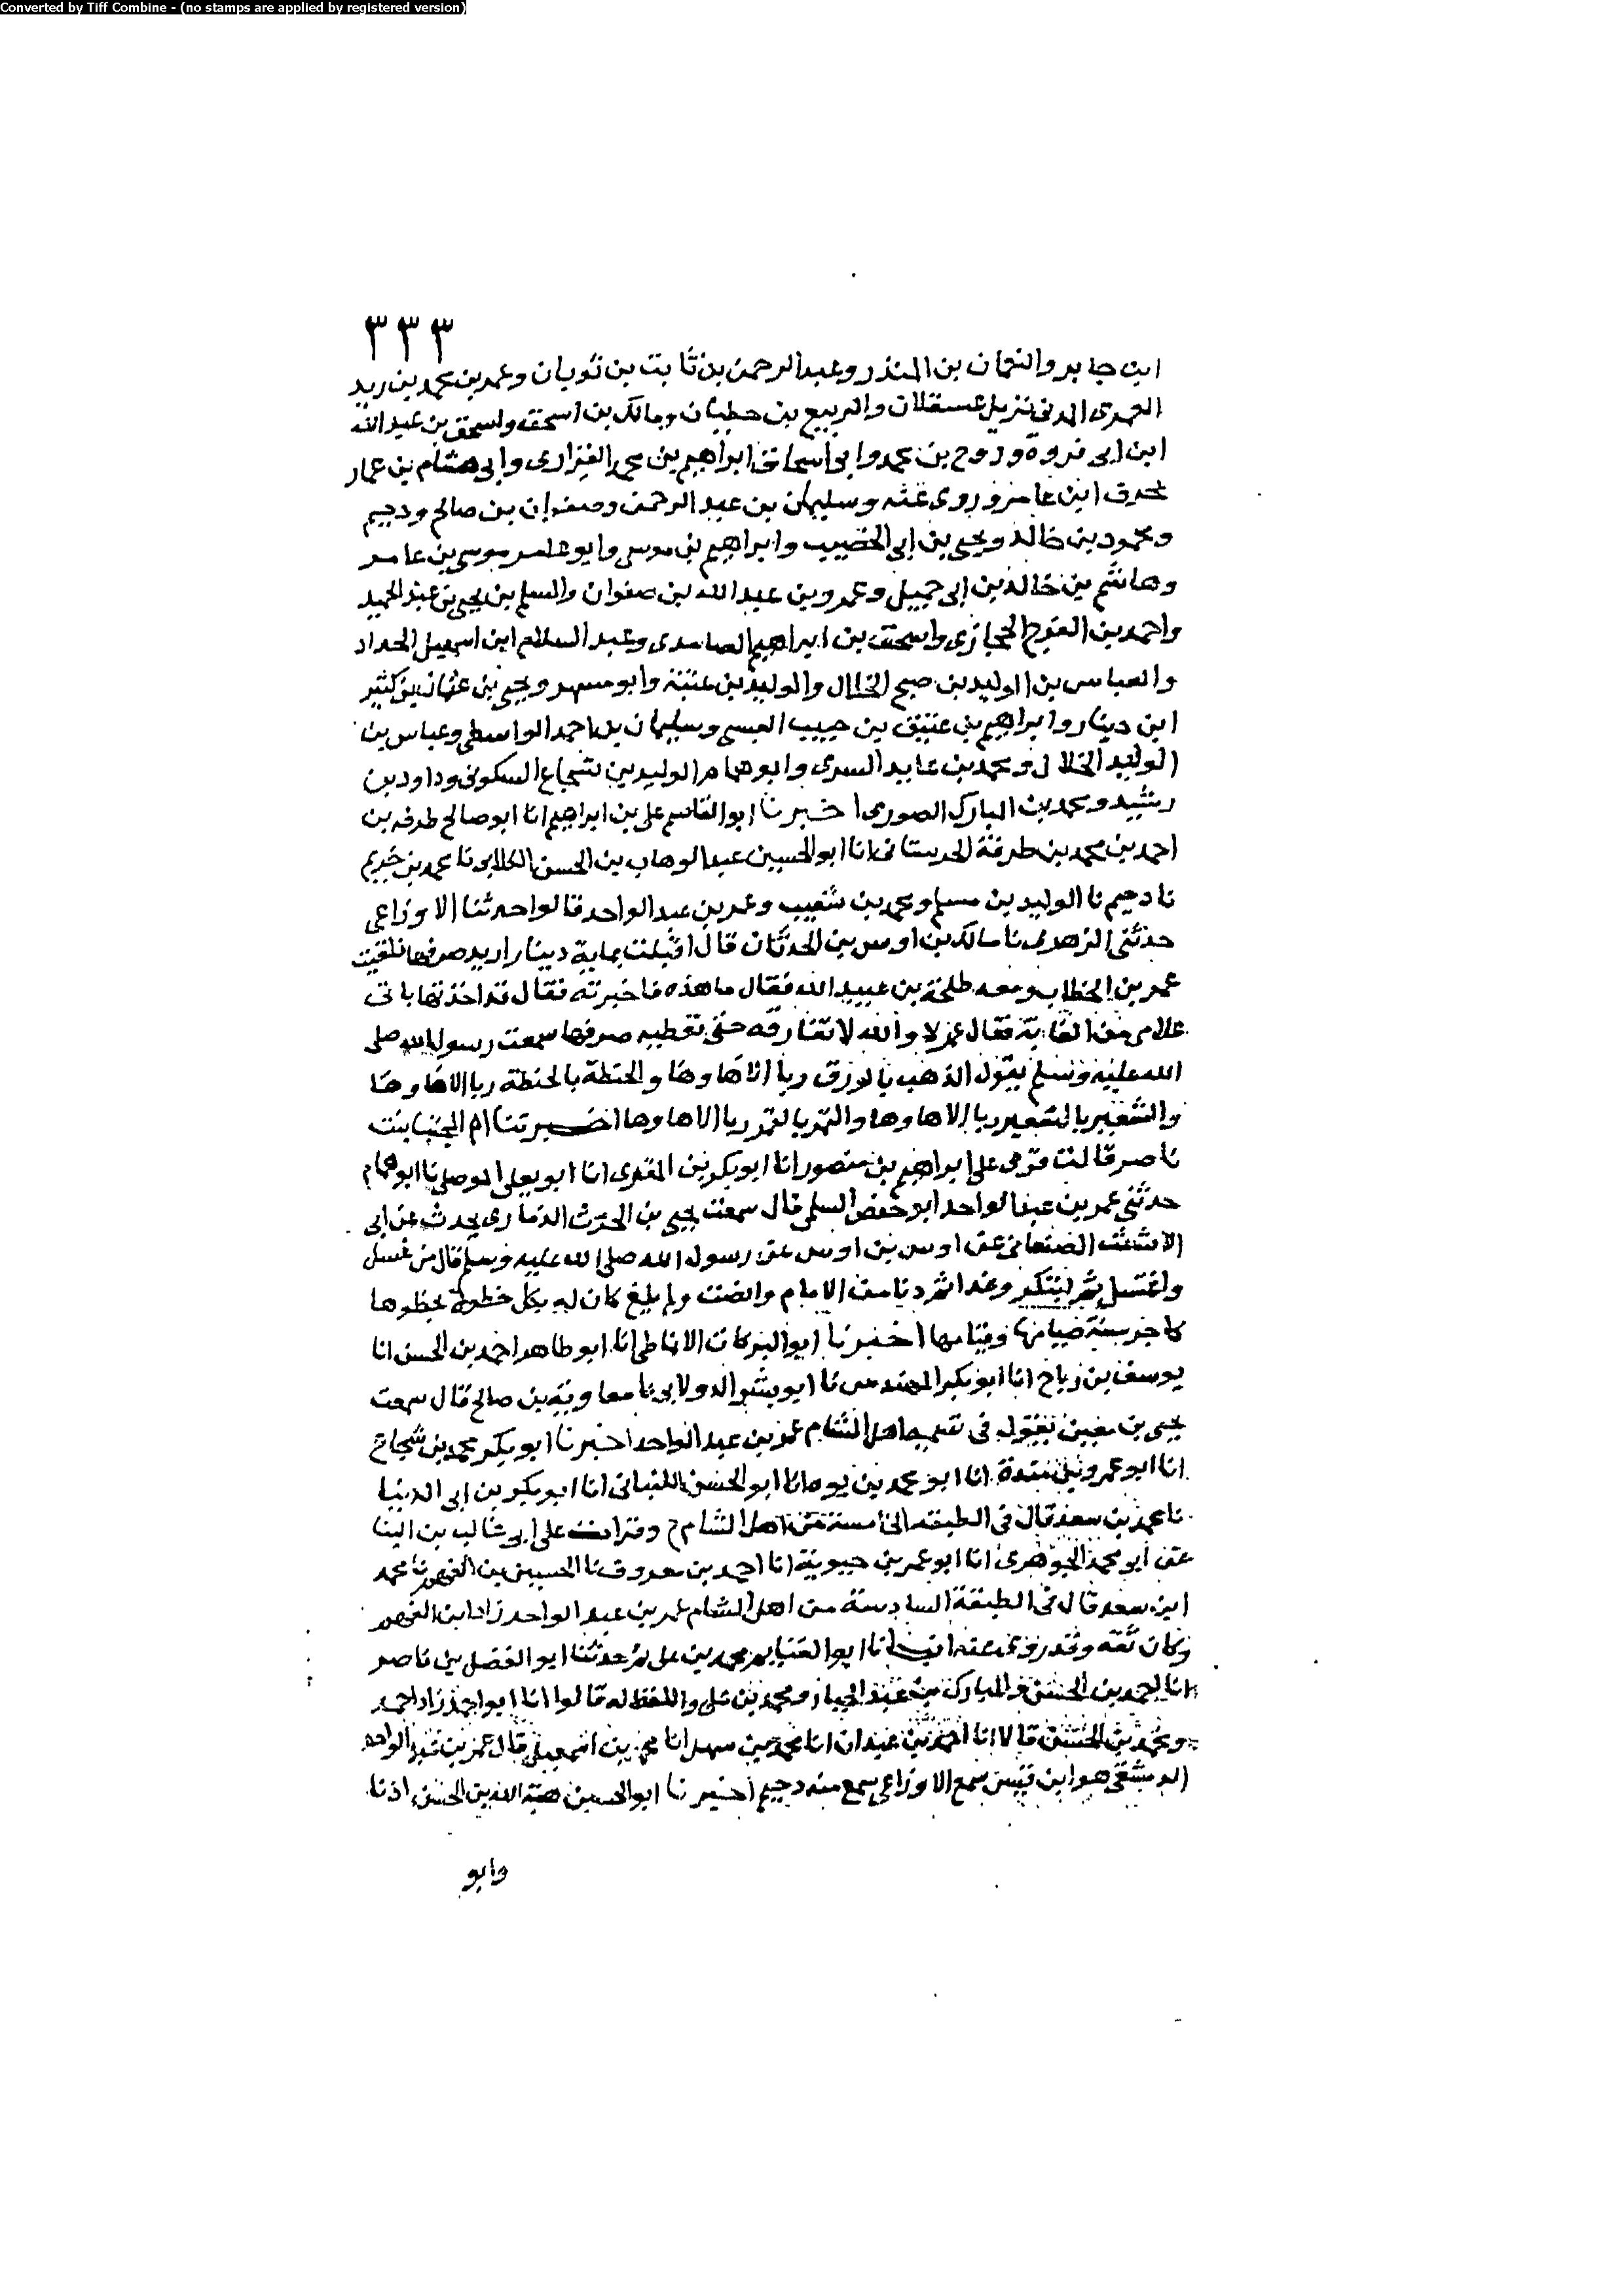 Converted by Tiff Combine - (no stamps are applied by registered version)
٣٣٣
ابن جابر والنعمان بن المنذر وعبد الرحمن بن ثابت بن ثوبان وعمر بن محمد بن زيد
العمرى المدنى نزيل عسقلان والربيع بن حطيان ومالك بن اسحق واسحق بن عبد الله
ابن ابى فروة وروح بن محمد وابى اسحاق ابراهيم بن محمد الفزارى وابى هشام بن عمار
بحرف ابن عامر وروى عنه وسليمان بن عبد الرحمن وصفوان بن صالح ودحيم
ومحمود بن خالد ويحيى بن ابى الخصيب وابراهيم بن موسى وابو عامر موسى بن عامر
وهاشم بن خالد بن ابى جميل وعمرو بن عبد الله بن صفوان والسلم بن يحيى بن عبد الحميد
واحمد بن الفرج الحجازى واسحق بن ابراهيم الصامدى وعبد السلام ابن اسمعيل الحداد
والعباس بن الوليد بن صبح الخلال والوليد بن عتبة وابو مسهر ويحيى بن عثمان بن كثير
ابن دينار وابراهيم بن عتيق بن حبيب العبسى وسليمان بن احمد الواسطى وعباس بن
الوليد الخلال ومحمد بن عايد السرى وابو همام الوليد بن شجاع السكونى وداود بن
رشيد ومحمد بن المبارك الصورى اخبرنا ابو القاسم على بن ابراهيم انا ابو صالح طرفه بن
احمد بن محمد بن طرفة الحرستانى انا ابو الحسين عبد الوهاب بن الحسن الكلابى نا محمد بن خريم
نا دحيم نا الوليد بن مسلم ومحمد بن شعيب وعمر بن عبد الواحد قالوا حدثنا الاوزاعى
حدثنى الزهرى نا مالك بن اوس بن الحدثان قال اقبلت بماية دينار اريد صرفها فلقيت
عمر بن الخطاب ومعه طلحة بن عبيد الله فقال ما هذه فاخبرته فقال قد اخذتها ياتى
غلامى من الغابة فقال عمر لا والله لا تفارقه حتى تعطيه صرفها سمعت رسول الله صلى
الله عليه وسلم يقول الذهب بالورق ربا الا ها وها والحنطة بالحنطة ربا الا ها وها
والشعير بالشعير ربا الا ها وها والتمر بالتمر ربا الا ها وها اخبرتنا ام المجتبا بنت
ناصر قالت قرى على ابراهيم بن منصور انا ابو بكر بن المقرى انا ابو يعلى الموصلى نا ابو همام
حدثنى عمر بن عبد الواحد ابو حفص السلمى قال سمعت يحيى بن الحرث الذمارى يحدث عن ابى
الاشعث الصنعانى عن اوس بن اوس عن رسول الله صلى الله عليه وسلم قال من غسل
واغتسل ثم ابتكر وغدا ثم دنا من الامام وانصت ولم يلغ كان له بكل خطوة يخطوها
كاجر سنة صيامها وقيامها اخبرنا ابو البركات الانماطى انا ابو طاهر احمد بن الحسن انا
يوسف بن رباح انا ابو بكر المهندس نا ابو بشر الدولابى نا معاوية بن صالح قال سمعت
يحيى بن معين يقول فى تسمية اهل الشام عمر بن عبد الواحد اخبرنا ابو بكر محمد بن شجاع
انا ابو عمرو بن مندة انا ابو محمد بن يوه انا ابو الحسن اللنبانى انا ابو بكر بن ابى الدنيا
نا محمد بن سعد قال فى الطبقه الخامسة من اهل الشام ح وقرات على ابى غالب بن البنا
عن ابو محمد الجوهرى انا ابو عمر بن حيوية انا احمد بن معروف نا الحسين بن الفهم نا محمد
ابن سعد قال فى الطبقة السادسة من اهل الشام عمر بن عبد الواحد زاد ابن الفهم
وكان ثقه وقد روى عنه انبانا ابو الغنايم محمد بن على ثم حدثنا ابو الفضل بن ناصر
انا احمد بن الحسن والمبارك بن عبد الجبار ومحمد بن على واللفظ له قالوا انا ابو احمد زاد احمد
ومحمد بن الحسن قالا انا احمد بن عبدان انا محمد بن سهل انا محمد بن اسمعيل قال عمر بن عبد الواحد
الدمشقى هو ابن قيس سمع الاوزاعى سمع منه دحيم اخبرنا ابو الحسين هبة الله بن الحسن اذنا
وابو